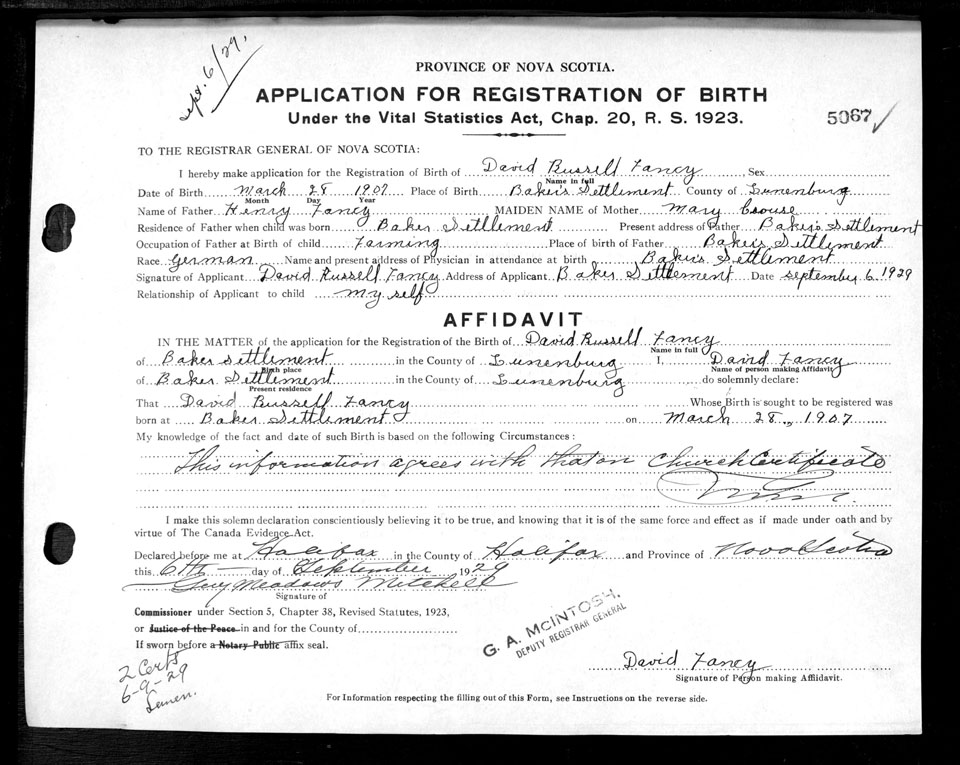 Sept. 6/29.
PROVINCE OF NOVA SCOTIA.
APPLICATION FOR REGISTRATION OF BIRTH
Under the Vital Statistics Act, Chap. 20, R. S. 1923.
5067
TO THE REGISTRAR GENERAL OF NOVA SCOTIA:
I hereby make application for the Registration of Birth of David Russell Fancy Sex
Name in full
Date of Birth March 28 1907 Place of Birth Baker's Settlement County of Lunenburg
Month Day Year
Name of Father Henry Fancy MAIDEN NAME of Mother Mary Crouse
Residence of Father when child was born Baker Settlement Present address of Father Baker's Settlement
Occupation of Father at Birth of child Farming Place of birth of Father Baker's Settlement
Race German Name and present address of Physician in attendance at birth Baker's Settlement
Signature of Applicant David Russell Fancy Address of Applicant Baker Settlement Date september 6 1929
Relationship of Applicant to child my self
AFFIDAVIT
IN THE MATTER of the application for the Registration of the Birth of David Russell Fancy
Name in full
of Baker settlement in the County of Lunenburg I, David Fancy
Birth place Name of person making Affidavit
of Baker Settlement in the County of Lunenburg do solemnly declare:
Present residence
That David Russell Fancy Whose Birth is sought to be registered was
born at Baker Settlement on March 28, 1907
My knowledge of the fact and date of such Birth is based on the following Circumstances:
This information agrees with that on Church Certificate
I make this solemn declaration conscientiously believing it to be true, and knowing that it is of the same force and effect as if made under oath and by
virtue of The Canada Evidence Act.
Declared before me at Halifax in the County of Halifax and Province of Nova Scotia
this 6th day of September 1929
Guy Meadows Mitchell
Signature of
Commissioner under Section 5, Chapter 38, Revised Statutes, 1923,
or Justice of the Peace in and for the County of
If sworn before a Notary Public affix seal.
G. A. McINTOSH,
DEPUTY REGISTRAR GENERAL
2 Certs
6-9-29
David Fancy
Signature of Person making Affidavit.
For Information respecting the filling out of this Form, see Instructions on the reverse side.